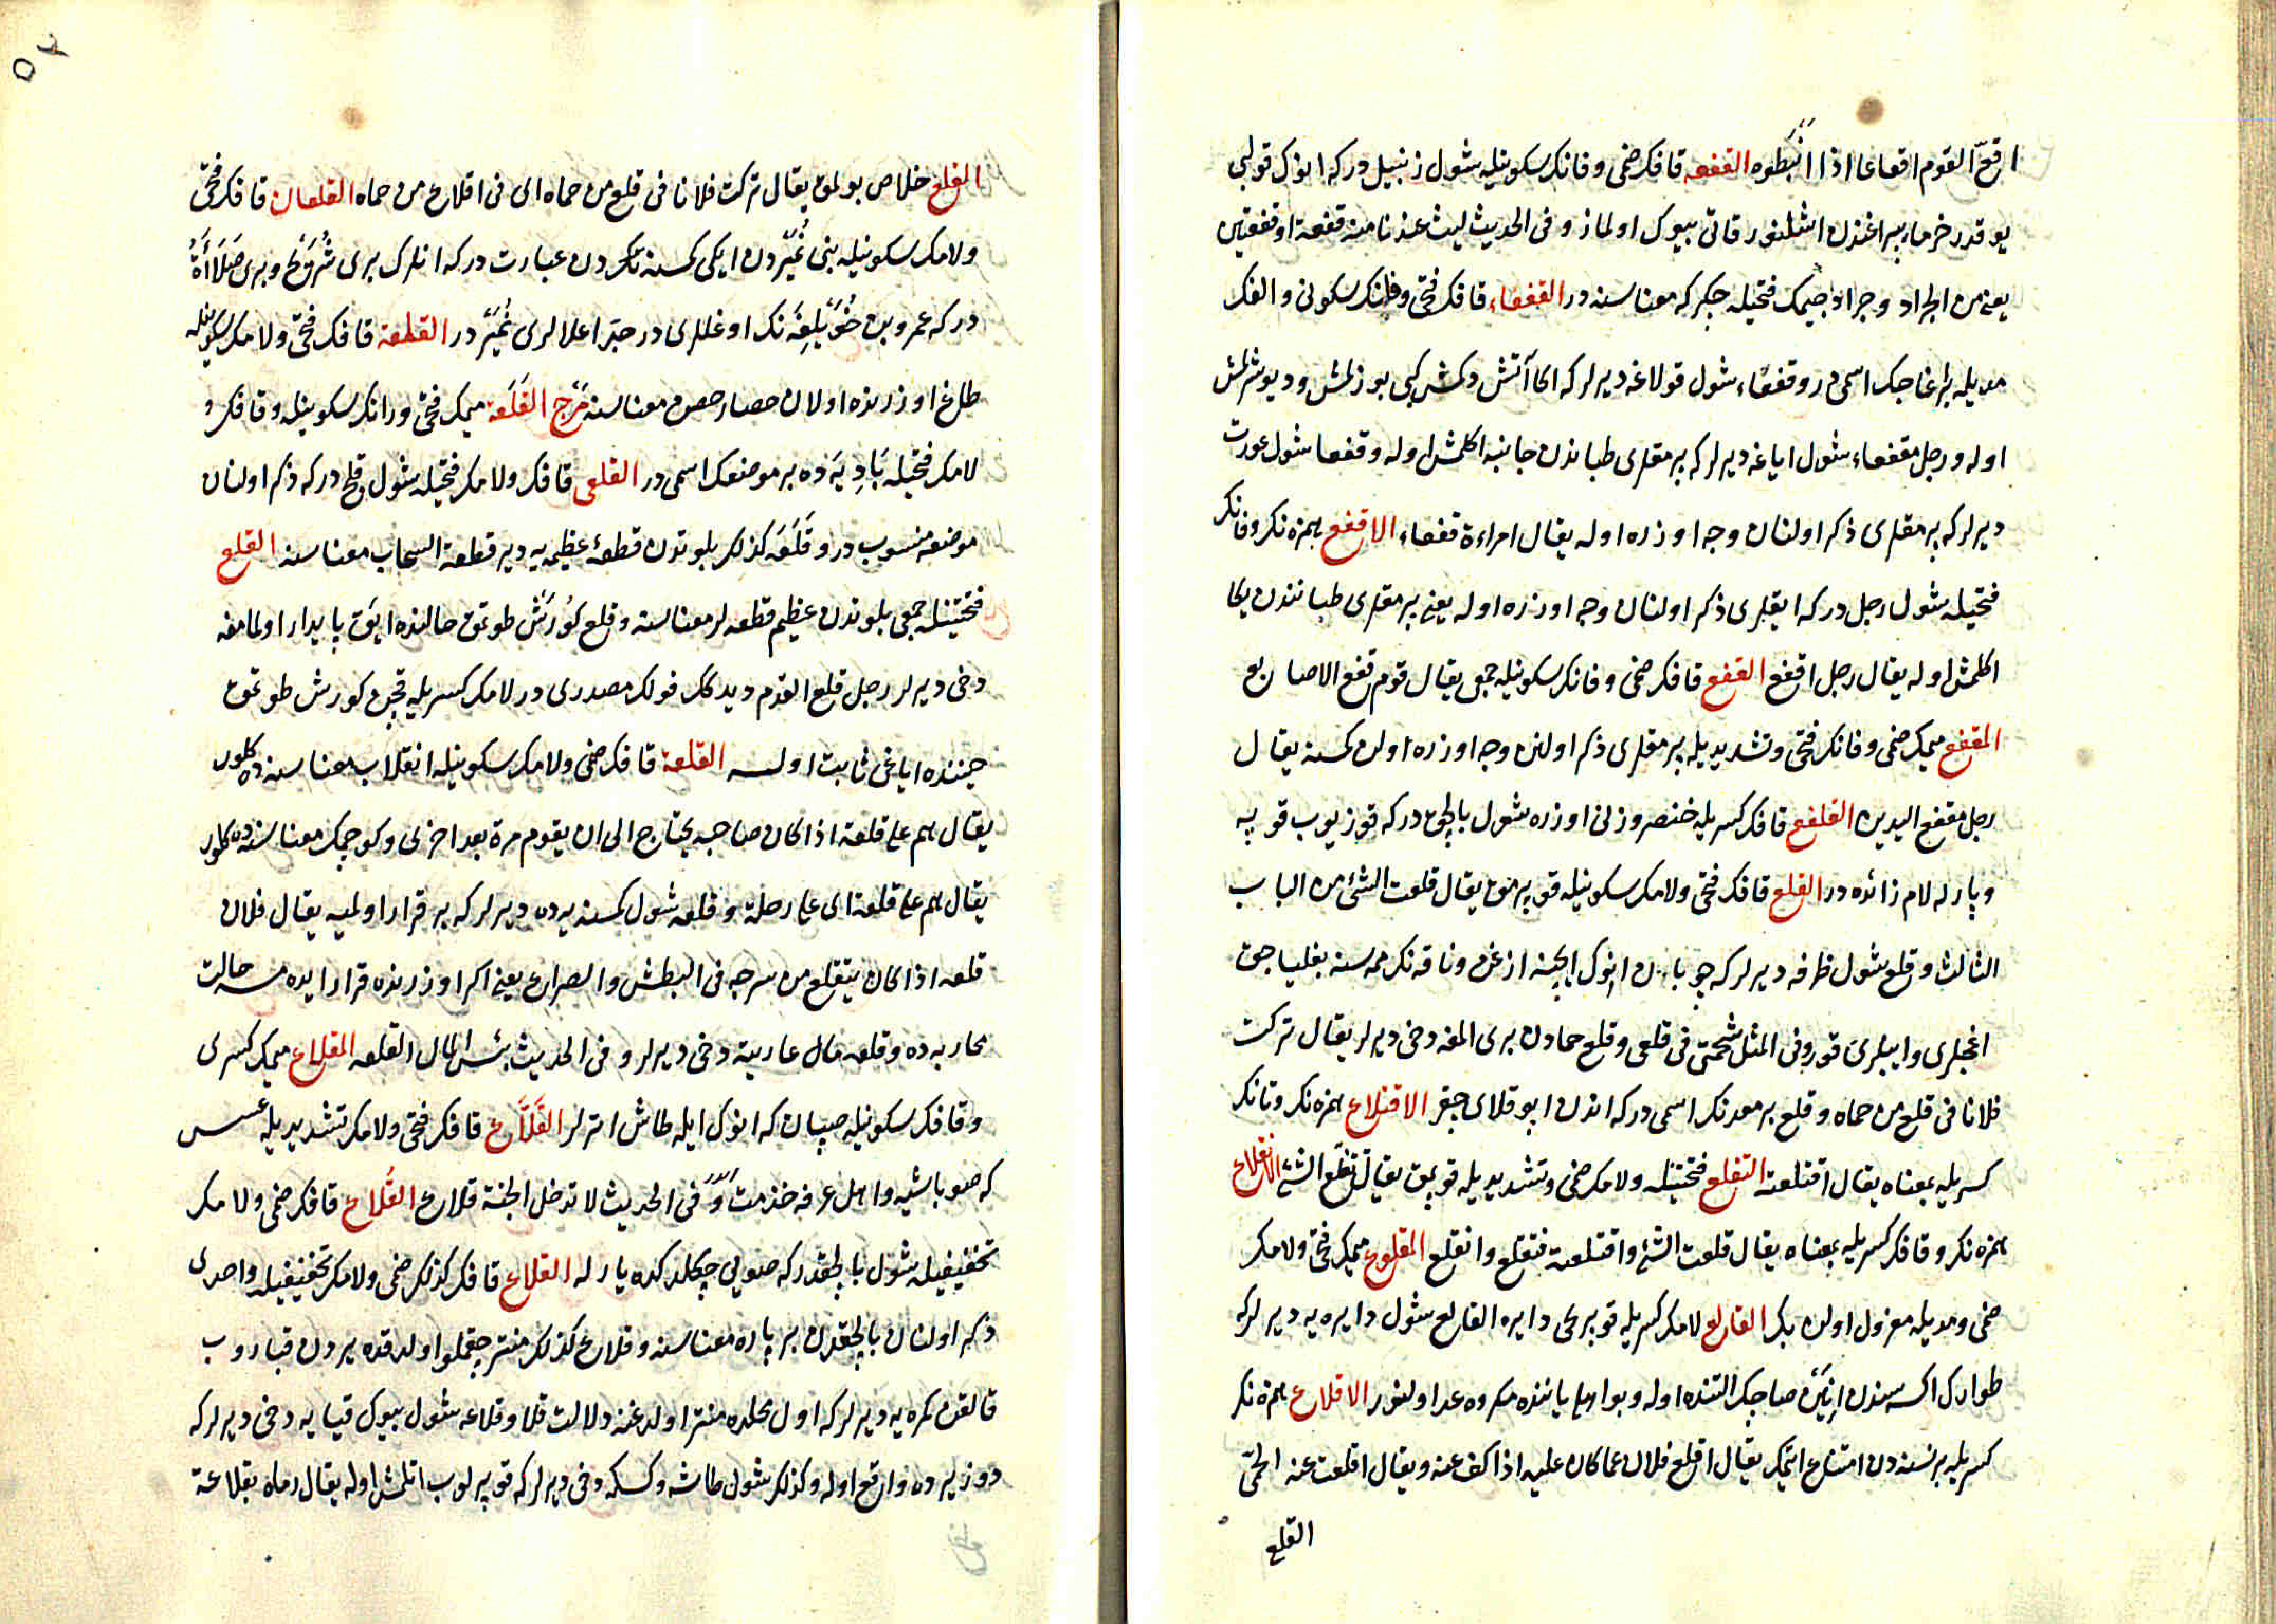 اقعّ القوم اقعاعا اذا انبطوه القفعه قافك ضمى وفانك سكونيله شول زنبيل دركه انوك قولپى
يوقدر خرما يپراغندن اشلنور قاتى بيوك اولماز وفى الحديث ليت عندنا منه قفعة او قفعتين
يعنى من الجراد وجراد جيمك فتحيله چكركه معناسنه در القفعاء قافك فتحى وفانك سكونى والفك
مديله بر اغاجك اسمى در وقفعاء شول قولاغه ديرلر كه اكا آتش دكمش كبى بوزلمش وديوشرلمش
اوله ورجل مقفعاء شول اياغه ديرلر كه برمقلرى طباندن جانبه اكلمش اوله وقفعا شول عورته
ديرلر كه برمقلرى ذكر اولنان وجه اوزره اوله يقال امراءة قفعاء الاقفع همزه نك وفانك
فتحيله شول رجل دركه ايقلرى ذكر اولنان وجه اوزره اوله يعنى برمقلرى طباننذن يكا
اكلمش اوله يقال رجل اقفع القفع قافك ضمى وفانك سكونيله جمعى يقال قوم قفع الاصابع
المقفع ميمك ضمى وفانك فتحى وتشديديله برمقلرى ذكر اولنن وجه اوزره اولن كمسنه يقال
رجل مقفع اليدين القلفع قافك كسريله خنصر وزنى اوزره شول بالچق دركه قوزيوب قوپه
ويارله لام زائده در القلع قافك فتحى ولامك سكونيله قوپرمق يقال قلعت الشئ من الباب
الثالث وقلع شول ظرفه ديرلر كه چوبانن انوك ايچنه ازغن وناقه نك ممه سنه بغلياجق
اغجلرى وايپلرى قور وفى المثل شحمتى فى قلعى وقلع حمادن برى المغه دخى ديرلر يقال تركت
فلانا فى قلع من حماه وقلع بر معدنك اسمى دركه اندن ايو قلاى چيقر الاقتلاع همزه نك وتانك
كسريله بمعناه يقال اقتلعته التقلع فتحتينله ولامك ضمى وتشديديله قوپمق يقال تقلع الشئ الانقلاع
همزه نك وقافك كسريله بمعناه يقال قلعت الشئ واقتلعته فتقلع وانقلع المقلوع ميمك فتحى ولامك
ضمى ومديله معزول اولن بك القالع لامك كسريله قوپرجى دايره القالع شول دايره يه ديرلر كه
طوارك اكسه سندن صاحبك التنده اوله وبو اهل ياننده مكروه عد اولنور الاقلاع همزه نك
كسريله بر نسنه دن امتناع ايتمك يقال اقلع فلان عما كان عليه اذا كف عنه ويقال اقلعت عنه الحمى
القلع
القلع خلاص بولمق يقال تركت فلانا فى قلع من حماه اى فى اقلاع من حماه القلعان قافك فتحى
ولامك سكونيله بنى نميردن ايكى كمسنه دن عبارت دركه انلرك برى شريح وبرى صلاءة
دركه عمرو بن خويلفه نك اوغللرى در جد اعلالرى نمير در القلعة قافك فتحى ولامك سكونيله
طاغ اوزرنده اولان حصار حصن معناسنه مرج القلعة ميمك فتحى ورانك سكونيله وقافك و
لامك فتحيله باديه ده بر موضعك اسمى در القلعى قافك ولامك فتحيله شول قلج دركه ذكر اولنان
موضعه منسوب در وقلعه كذلك بلوتدن قطعۀ عظيمه يه دير قطعة السحاب معناسنه القلع
فتحتينله جمعى بلوتدن عظيم قطعه لر معناسنه وقلع كورش طوتمق حالنده ايق پايدار اولمامغه
دخى ديرلر رجل قلع القدم ديدكلر قولك مصدرى در لامك كسريله قچن كورش طوتمق
حيننده اياغى ثابت اولمسه القلعة قافك ضمى ولامك سكونيله انقلاب معناسنه ده كلور
يقال هم على قلعة اذا كان صاحبه يحتاج الى ان يقوم مرة بعد اخرى وكوچمك معناسنه ده كلور
يقال هم على قلعة اى على رحلة وقلعه شول كمسنه يه ده ديرلر كه برقرار اولميه يقال فلان
قلعه اذا كان يتقلع من سرجه فى البطش والصراع يعنى اكر اوزرنده قرار ايده مسه حالت
محاربه ده وقلعه مال عاريته دخى ديرلر وفى الحديث بئس المال القلعه المقلاع ميمك كسرى
وقافك سكونيله صپان كه انوك ايله طاش اترلر القلّاع قافك فتحى ولامك تشديديله عسس
كه صوباشيه واهل عرفه خذمت فى الحديث لا تدخل الجنة قلاع القُلاع قافك ضمى ولامك
تخفيفيله شول بالچقدر كه صويى چكلدكده يارله القلاع قافك كذلك ضمى ولامك تخفيفيله واحدى
ذكر اولنان بالچقدن بر پاره معناسنه وقلاع كذلك منتر چقملو اولدقده يردن قباروب
قالقن كمره يه ديرلر كه اول محلده منتر اولدغنه دلالت قلا وقلاعه شول بيوك قيايه دخى ديرلر كه
دوز يرده واقع اوله وكذلك شول طاشه وكسكه دخى ديرلر كه قوپرلوب اتلمش اوله يقال رماه بقلاعة